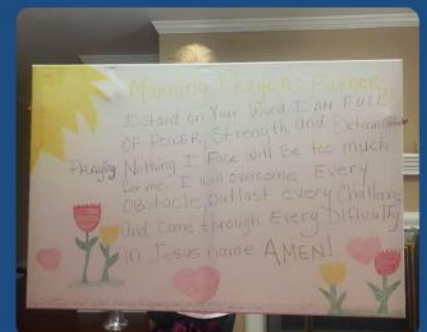 Morning Prayers: Father,
I stand on Your Word. I am FULL
OF POWER, Strength, and Determination
Praying Nothing I Face will Be too much
for me. I will overcome Every
Obstacle, outlast every Challenge
And come through Every Difficulty
in Jesus name AMEN!